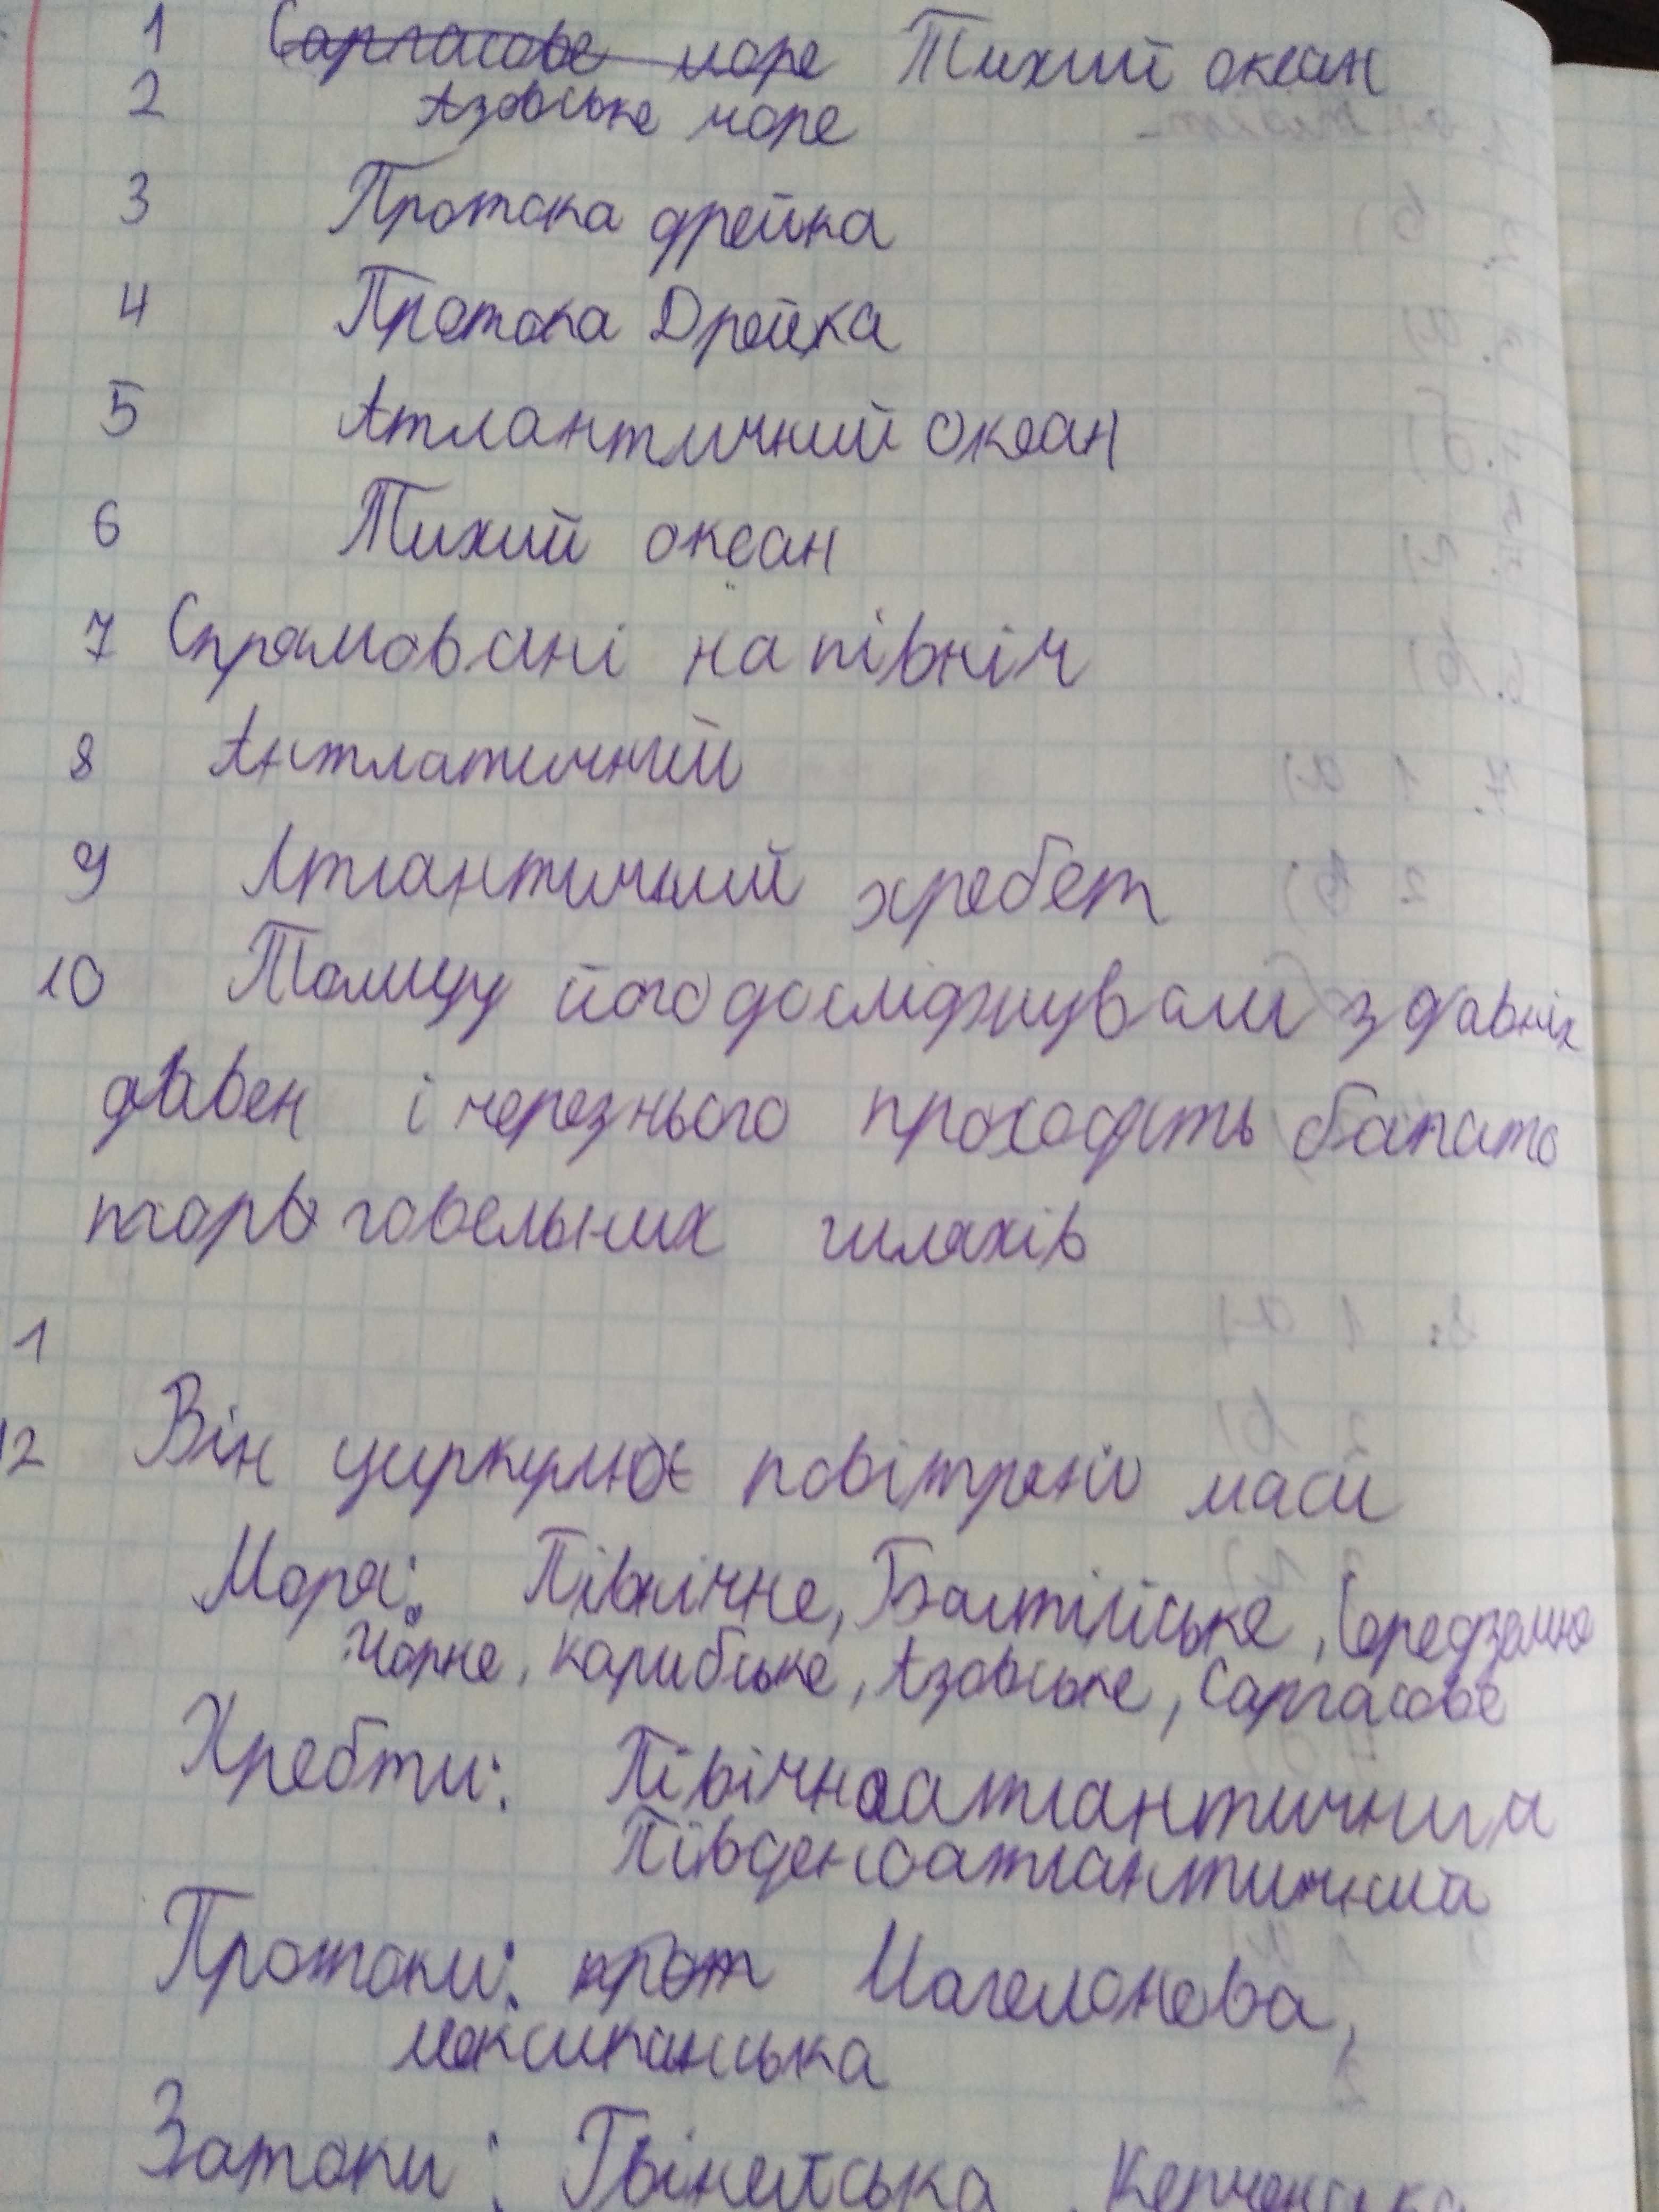 1 Саргасове море Тихий океан
2 Азовське море
3 Протока дрейка
4 Протока Дрейка
5 Атлантичний океан
6 Тихий океан
7 Спрямовані на північ
8 Антлатичний
9 Атлантичний хребет
10 Тому що його досліджували з давніх
давен і через нього проходять багато
торговельних шляхів
1
12 Він циркулює повітряні маси
Моря: Північне, Балтійське, Середземне
Чорне, Карибське, Азовське, Саргасове
Хребти: Півічноатлантичний
Південоатлантичний
Протоки: прот Магеланова,
мексиканська
Затоки: Гвінейська, Керченська